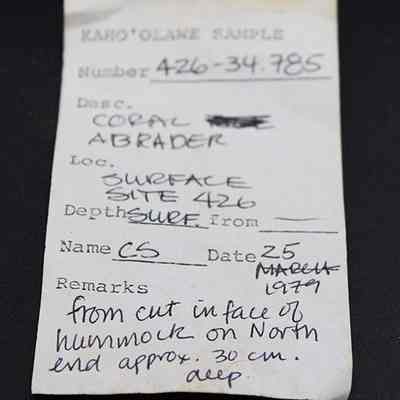 KAHO'OLAWE SAMPLE
Number 426-34.785
Desc.
CORAL
ABRADER
Loc.
SURFACE
SITE 426
Depth SURF. from —
Name CS Date 25
MARCH
1979
Remarks
from cut in face of
hummock on North
end approx. 30 cm.
deep.